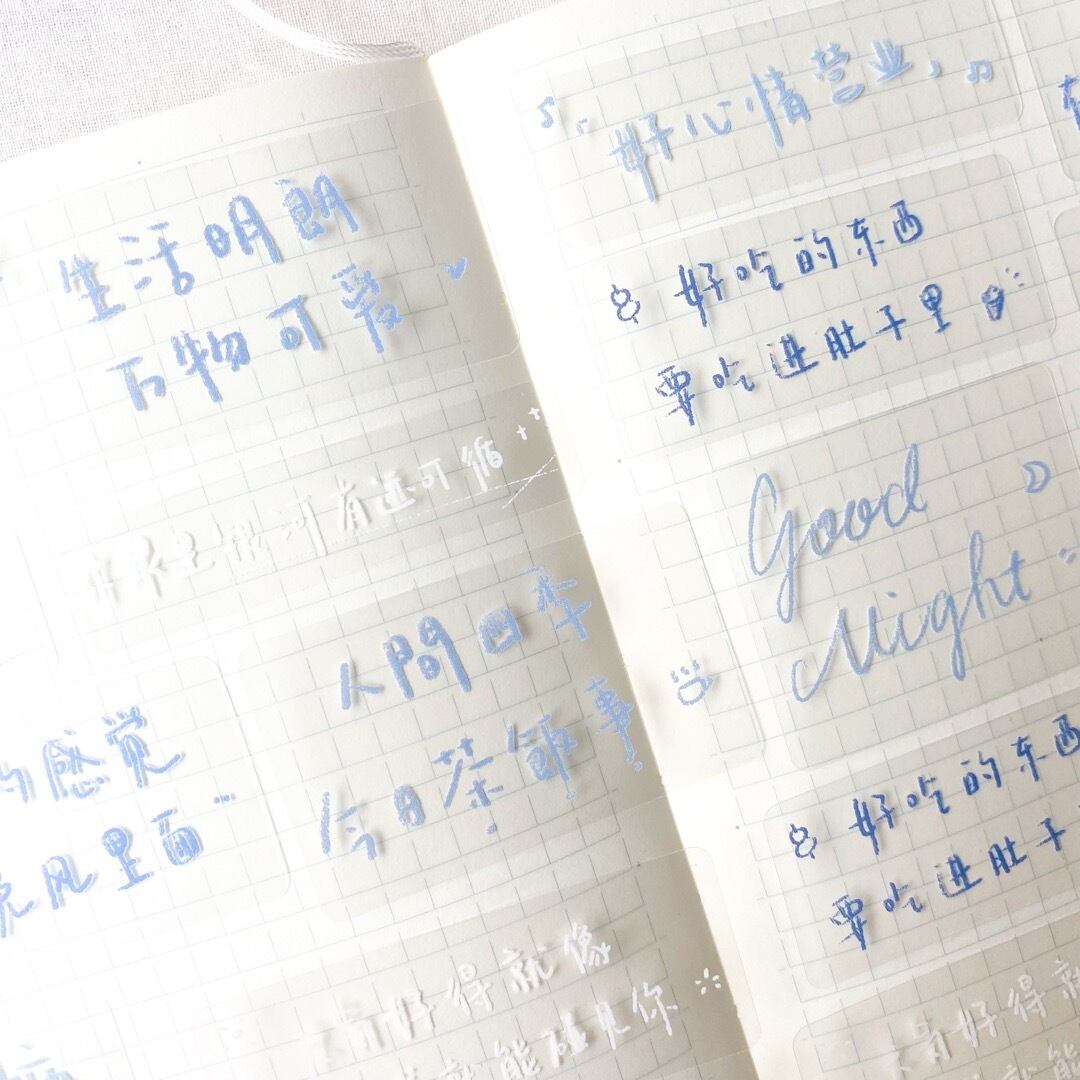 生活明朗
万物可爱
银河有迹可循
人間四季
今日茶飯事
的感觉
晚风里面...
好得就像
就能碰见你
好心情营业
好吃的东西
要吃进肚子里
Good
Night
好吃的东西
要吃进肚子
好得就
就能